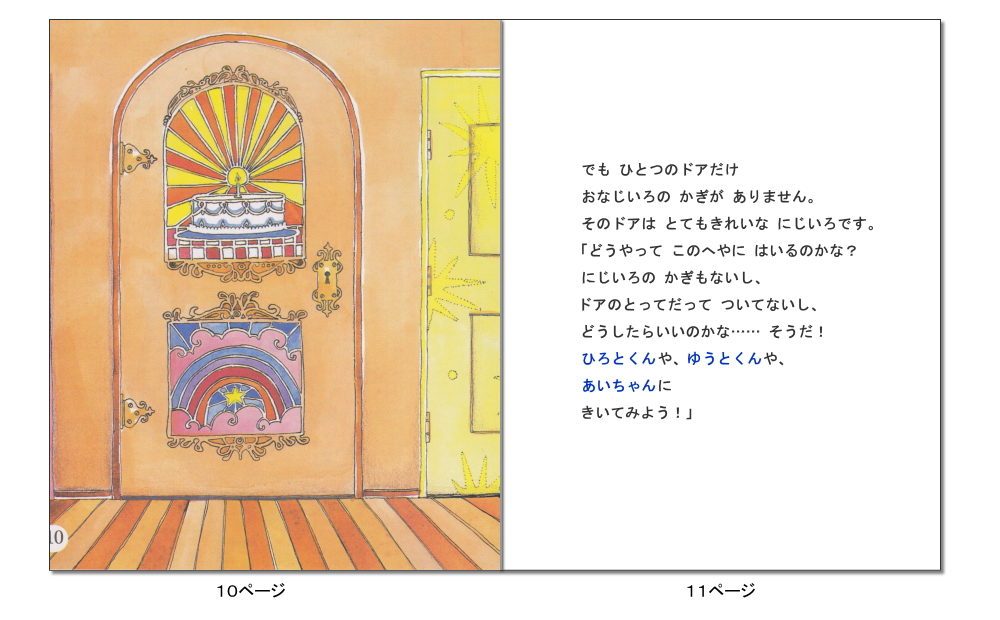 でも ひとつのドアだけ
おなじいろの かぎが ありません。
そのドアは とてもきれいな にじいろです。
「どうやって このへやに はいるのかな？
にじいろの かぎもないし、
ドアのとってだって ついてないし、
どうしたらいいのかな…… そうだ！
ひろとくんや、ゆうとくんや、
あいちゃんに
きいてみよう！」
10
10ページ
11ページ